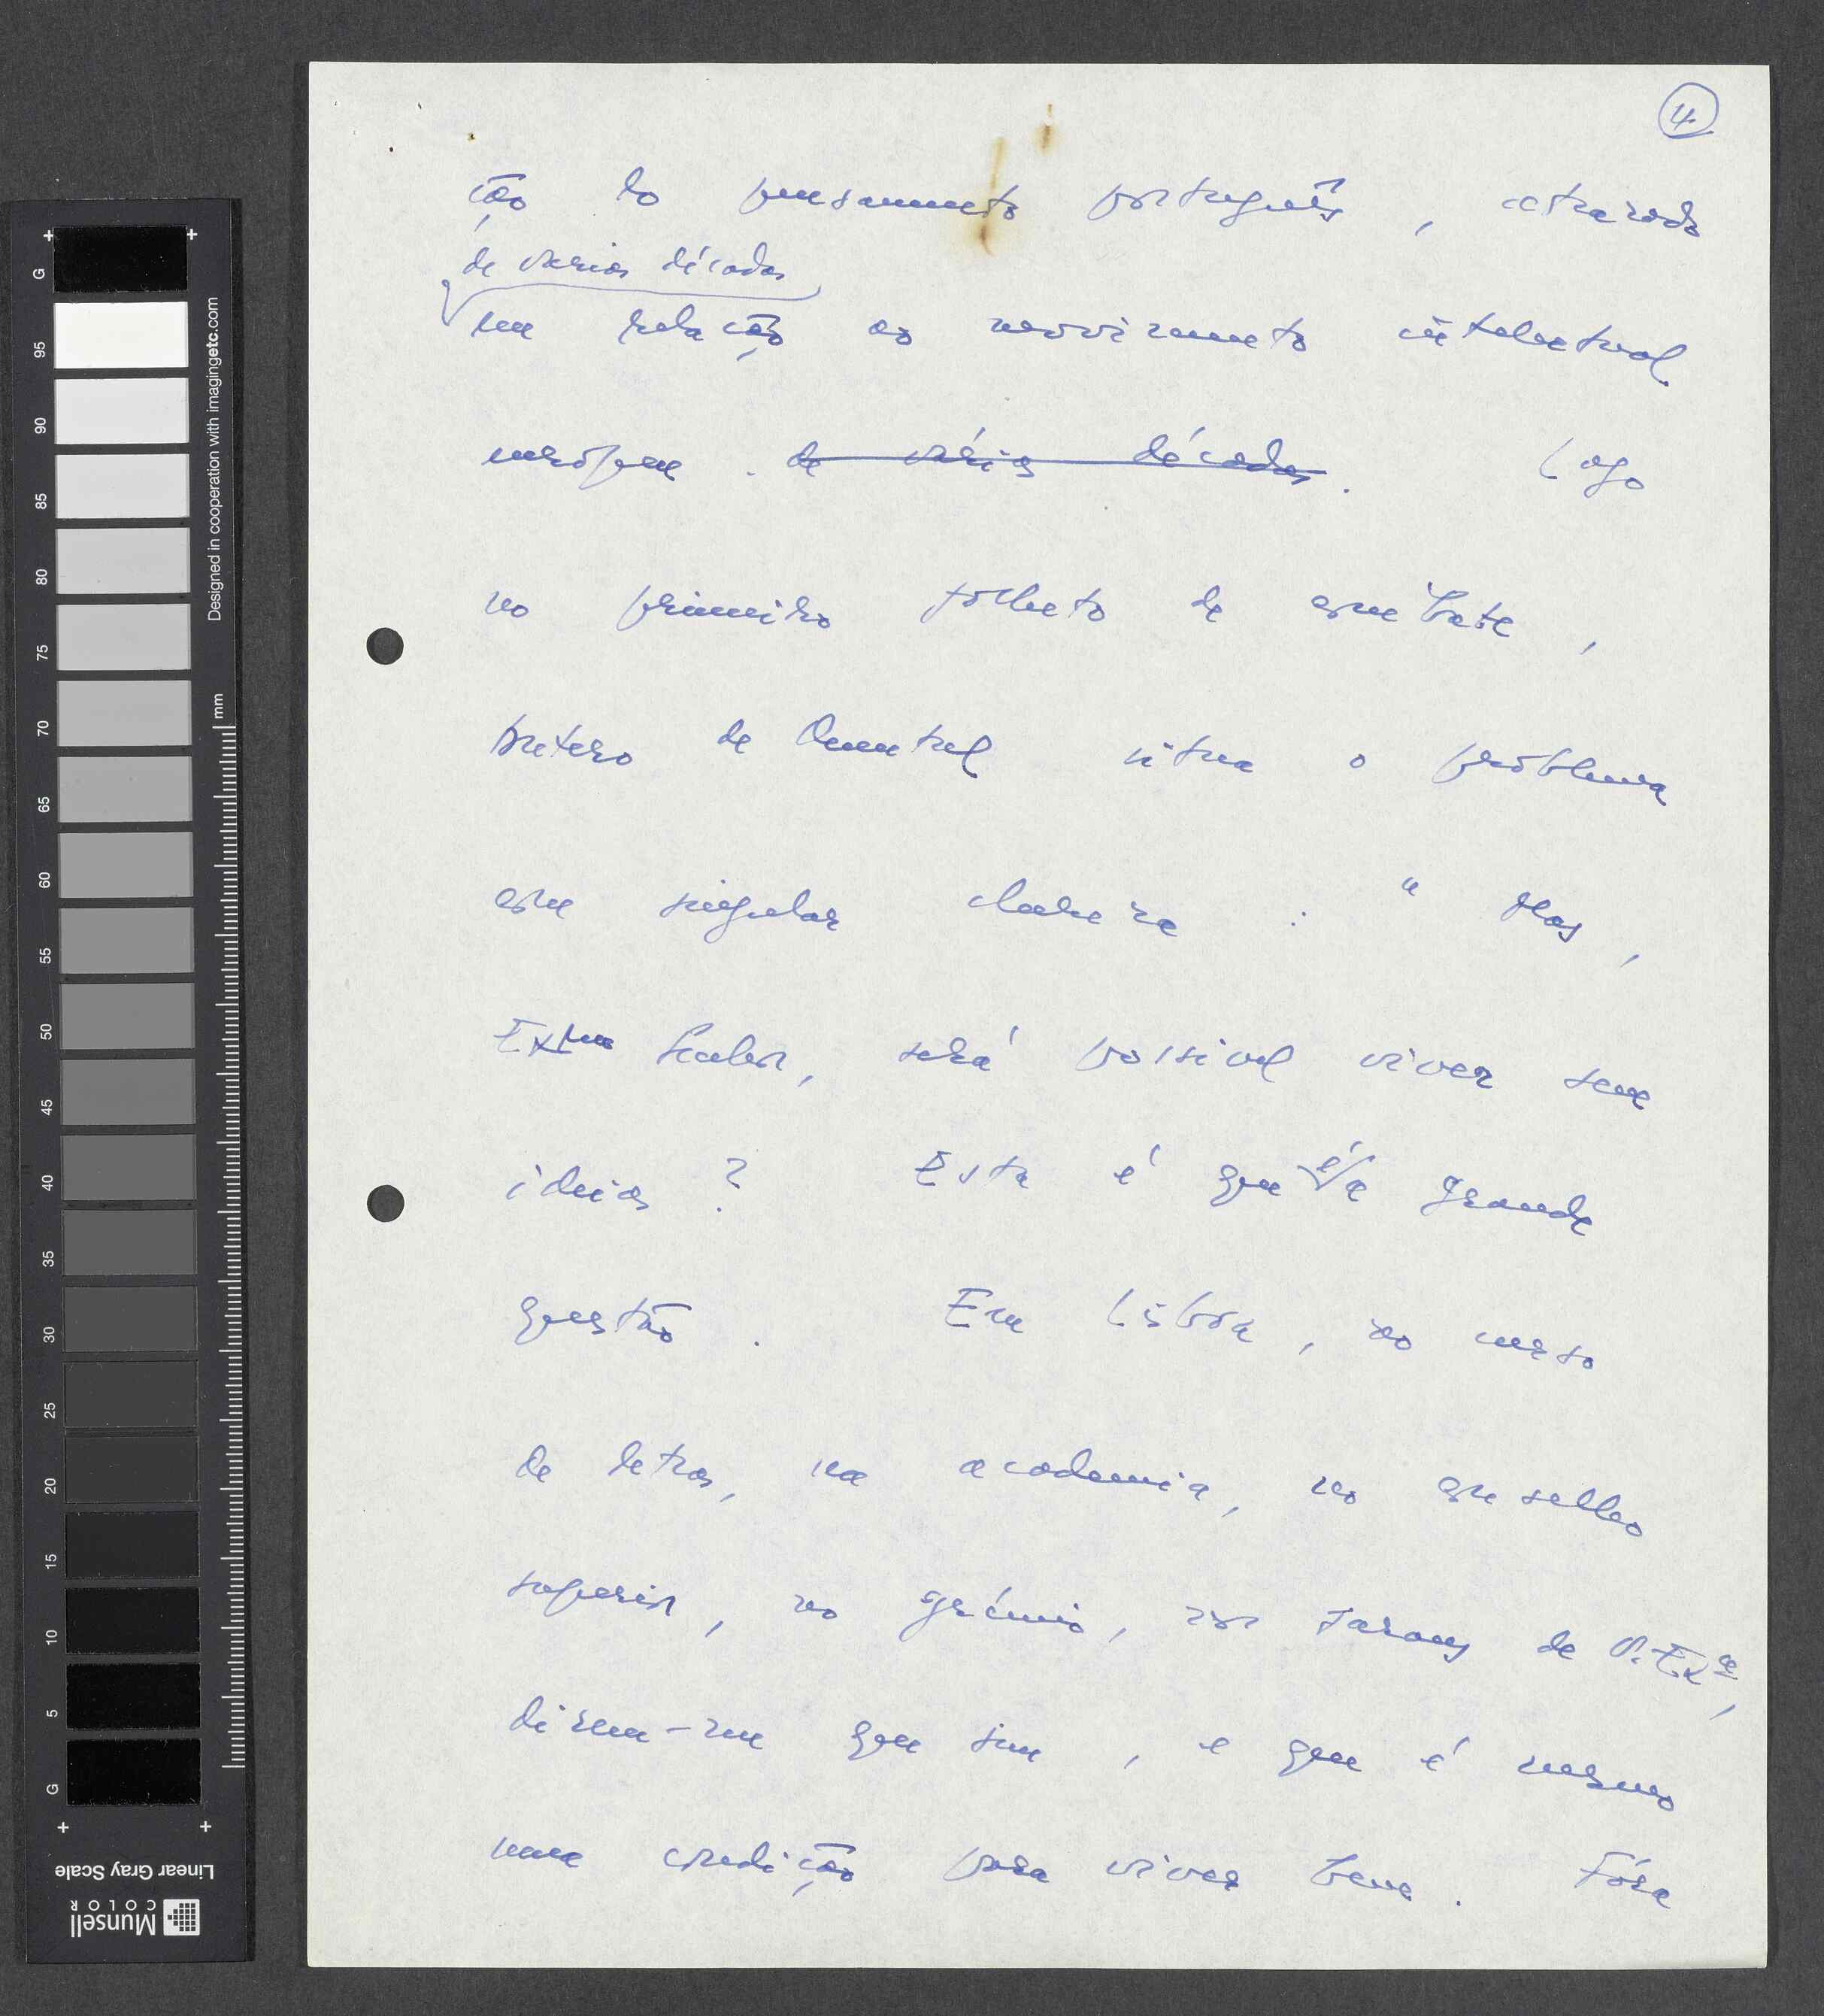 4
ção do pensamento português, atrazado
de varias décadas
em relação ao movimento intelectual
europeu . de várias décadas. Logo
no primeiro folheto de combate,
Antero de Quental situa o problema
com singular clareza : " Mas,
Exmo Senhor, será possivel viver sem
ideias ? Esta é que é a grande
questão . Em Lisboa, no curso
de letras, na academia, no conselho
superior, no grémio, nos saraus de V. Exª,
dizem-me que sim , e que é mesmo
uma condição para viver bem . Fóra
G
95
90
85
80
75
70
65
60
55
50
45
40
35
30
25
20
15
10
5
G
mm
Designed in cooperation with imagingetc.com
Linear Gray Scale
Munsell
COLOR